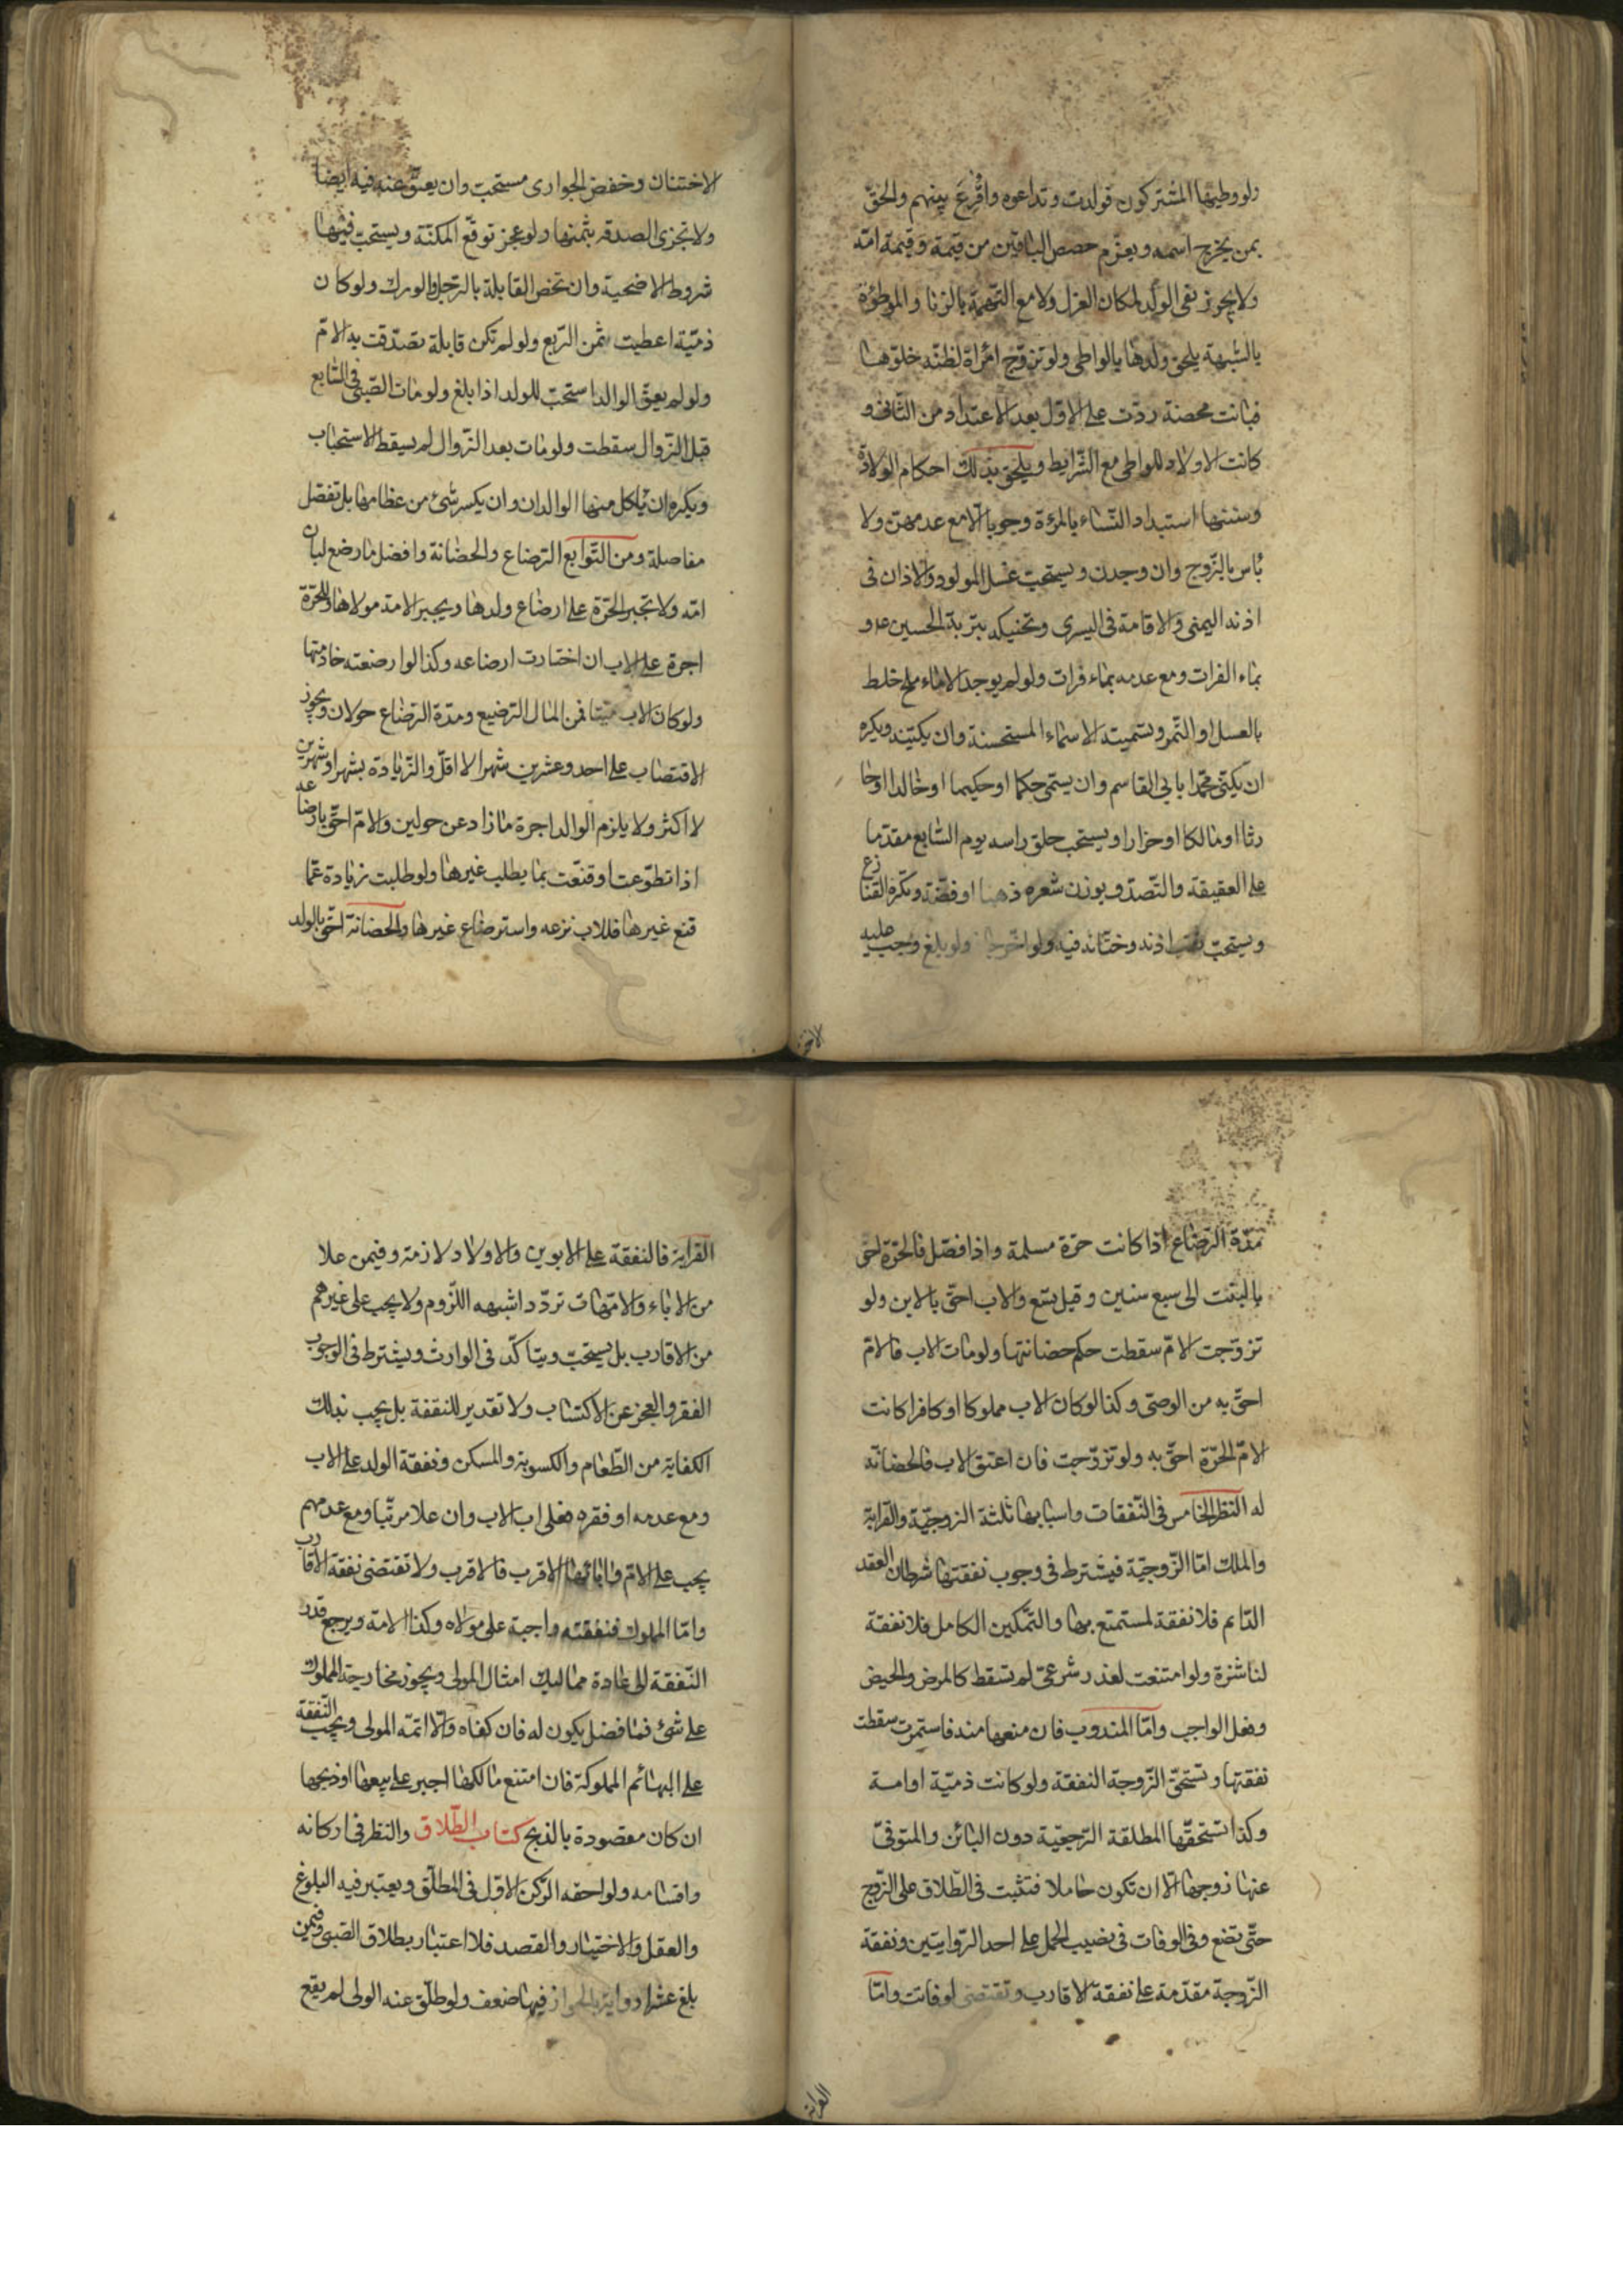 ولو وطيها المشتركون فولدت وتداعوه واقرع بينهم والحق
بمن يخرج اسمه ويعزم حصص الباقين من قيمة وقيمة امه
ولا يجوز نفى الولد لمكان العزل ولا مع التهمة بالزنا والموطؤة
بالشبهة يلحق ولدها بالواطى ولو تزوج امراة لظنه خلوها
فبانت محصنة ردت على الاول بعد الاعتداد من الثانى و
كانت الاولاد للواطى مع الشرايط ويلحق بذلك احكام الولادة
وسننها استبداد النساء بالمرءة وجوبا الا مع عدمهن ولا
باس بالزوج وان وجدن ويستحب غسل المولود والاذان فى
اذنه اليمنى والاقامة فى اليسرى وتحنيكه بتربة الحسين ع و
بماء الفرات ومع عدمه بماء فرات ولو لم يوجد الا ماء ملح خلط
بالعسل او التمر وتسميته الاسماء المستحسنة وان يكنيه ويكره
ان يكنى محمدا بابى القاسم وان يسمى حكما او حكيما او خالدا او حا
رثا او مالكا او ضرارا ويستحب حلق راسه يوم السابع مقدما
على العقيقة والتصدق بوزن شعره ذهبا او فضة ويكره القنازع
ويستحب ثقب اذنه وختانه فيه ولو اخر جاز ولو بلغ وجب عليه
الاختتان وخفض الجوارى مستحب وان يعق عنه فيه ايضا
ولا تجزى الصدقه بثمنها ولو عجز توقع المكنة ويستحب فيها
شروط الاضحية وان تخص القابلة بالرجل والورك ولو كان
ذمية اعطيت ثمن الربع ولو لم تكن قابلة تصدقت به الام
ولو لم يعق الوالد استحب للولد اذا بلغ ولو مات الصبى فى السابع
قبل الزوال سقطت ولو مات بعد الزوال لم يسقط الاستحباب
ويكره ان ياكل منها الوالدان وان يكسر شئ من عظامها بل تفصل
مفاصلة ومن التوابع الرضاع والحضانة وافضل ما رضع لبان
امه ولا تجبر الحرة على ارضاع ولدها ويجبر الامة مولاها وللحرة
اجرة على الاب ان اختارت ارضاعه وكذا لو ارضعته خادمتها
ولو كان الاب ميتا فمن المال الرضيع ومدة الرضاع حولان ويجوز
الاقتصاب على احد وعشرين شهرا لا اقل والزيادة بشهر او شهرين
لا اكثر ولا يلزم الوالد اجرة ما زاد عن حولين والام احق بارضاعه
اذا تطوعت او قنعت بما يطلب غيرها ولو طلبت زيادة عما
قنع غيرها فللاب نزعه واسترضاع غيرها والحضانة احق بالولد
لاختـ
مدة الرضاع اذا كانت حرة مسلمة واذا فصل فالحرة احق
بالبنت الى سبع سنين وقيل تسع والاب احق بالابن ولو
تزوجت الام سقطت حكم حضانتها ولو مات الاب فالام
احق به من الوصى وكذا لو كان الاب مملوكا او كافرا كانت
الام الحرة احق به ولو تزوجت فان اعتق الاب فالحضانة
له النظر الخامس فى النفقات واسبابها ثلثة الزوجية والقرابة
والملك اما الزوجية فيشترط فى وجوب نفقتها شرطان العقد
الدايم فلا نفقة لمستمتع بها والتمكين الكامل فلا نفقة
لناشزة ولو امتنعت لعذر شرعى لم تسقط كالمرض والحيض
وفعل الواجب واما المندوب فان منعها منه فاستمرت سقطت
نفقتها وتستحق الزوجة النفقة ولو كانت ذمية او امة
وكذا تستحقها المطلقة الرجعية دون البائن والمتوفى
عنها زوجها الا ان تكون حاملا فتثبت فى الطلاق على الزوج
حتى تضع وفى الوفات فى نصيب الحمل على احد الروايتين ونفقة
الزوجة مقدمة على نفقة الاقارب وتقتضى لو فاتت واما
القرابة فالنفقة على الابوين والاولاد لازمة وفيمن علا
من الاباء والامهات تردد اشبهه اللزوم ولا يجب على غيرهم
من الاقارب بل يستحب ويتاكد فى الوارث ويشترط فى الوجوب
الفقر والعجز عن الاكتساب ولا تقدير للنفقة بل يجب بذلك
الكفاية من الطعام والكسوية والمسكن ونفقة الولد على الاب
ومع عدمه او فقره فعلى اب الاب وان علا مرتبا ومع عدمهم
يجب على الام وابائها الاقرب فالاقرب ولا تقتضى نفقة الاقارب
واما المملوك فنفقته واجبة على مولاه وكذا الامة ويرجع قدر
النفقة الى عادة مماليك امثال المولى ويجوز مخارجة المملوك
على شئ فما فضل يكون له فان كفاه والا اتمه المولى ويجب النفقة
على البهائم المملوكة فان امتنع مالكها اجبر على بيعها او ذبحها
ان كان مقصودة بالذبح كتاب الطلاق والنظر فى اركانه
واقسامه ولواحقه الركن الاول فى المطلق ويعتبر فيه البلوغ
والعقل والاختيار والقصد فلا اعتبار بطلاق الصبى وفيمن
بلغ عشرا رواية بالجواز فيها ضعف ولو طلق عنه الولى لم يقع
القرابة